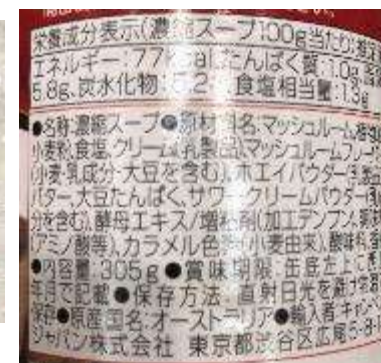 栄養成分表示(濃縮スープ100g当たり):推定
エネルギー:77kcal、たんぱく質:1.0g、
5.8g、炭水化物:5.2、食塩相当量:1.3g
●名称:濃縮スープ●原材料名:マッシュルーム、
小麦粉、食塩、クリーム(乳製品)、マッシュルーム
(小麦・乳成分・大豆を含む)、ホエイパウダー
バター、大豆たんぱく、サワークリームパウダー
分を含む)、酵母エキス/増粘剤(加工デンプン、
(アミノ酸等)、カラメル色素(小麦由来)、酸味料、
●内容量:305g●賞味期限:缶底左上に
年月で記載●保存方法:直射日光を避け
保存●原産国名:オーストラリア●輸入者:キャンベル
ジャパン株式会社 東京都渋谷区広尾5-8-